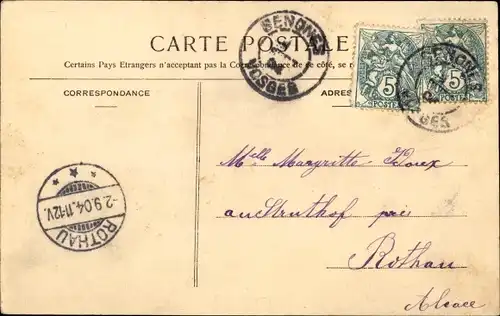 CARTE POSTALE
Certains Pays Etrangers n'acceptant pas la Correspondance de ce côté, se r
CORRESPONDANCE
ADRES
SENONES
VOSGES
5
POSTES
5
POSTE
SENONES
GES
Melle Margritte
au Struthof près
Rothau
Alsace
-2.9.04.11-12V.
ROTHAU